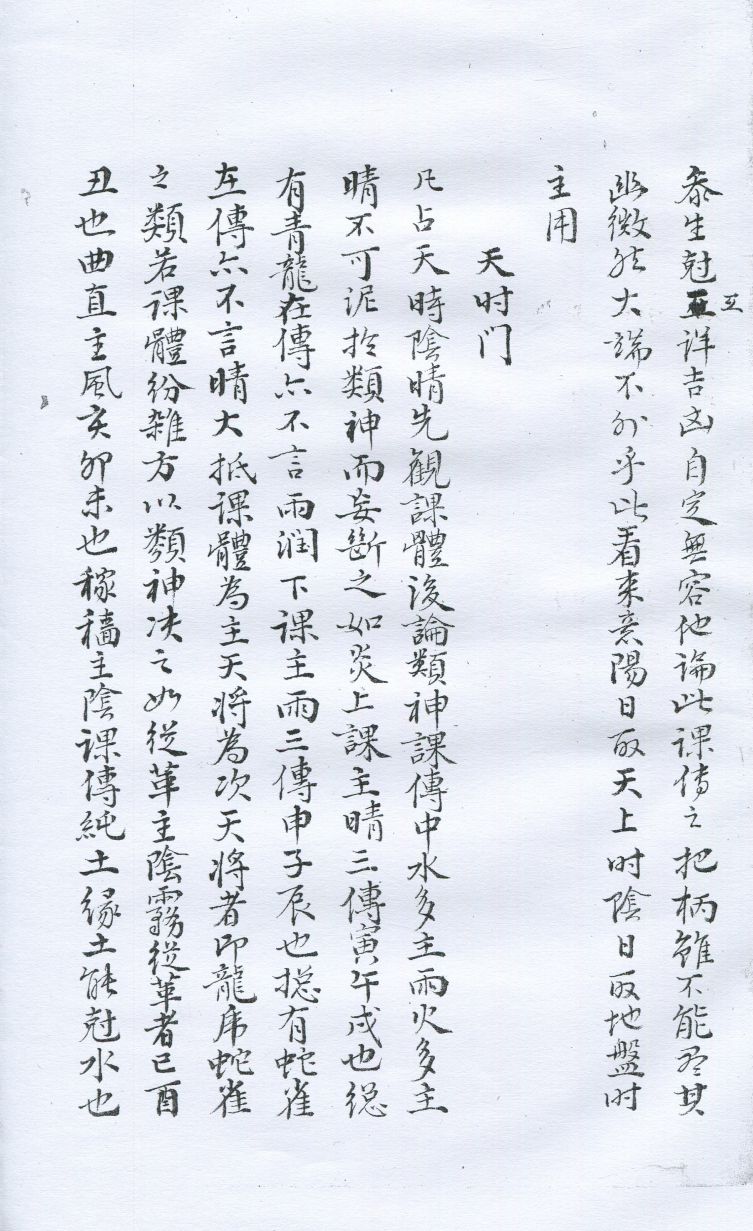 泰生尅互詳吉凶自定無容他論此課传之把柄雖不能尽其
幽微然大端不外乎此看来意陽日取天上时陰日取地盤时
主用
天时门
凡占天時陰晴先觀課體後論類神課傳中水多主雨火多主
晴不可泥於類神而妄斷之如炎上課主晴三傳寅午戌也総
有青龍在傳亦不言雨润下课主雨三傳申子辰也捴有蛇雀
在傳亦不言晴大抵课體為主天將為次天將者即龍虎蛇雀
之類若课體紛雜方以類神决之如從革主陰霧從革者巳酉
丑也曲直主風亥卯未也稼穡主陰课傳純土缘土能尅水也